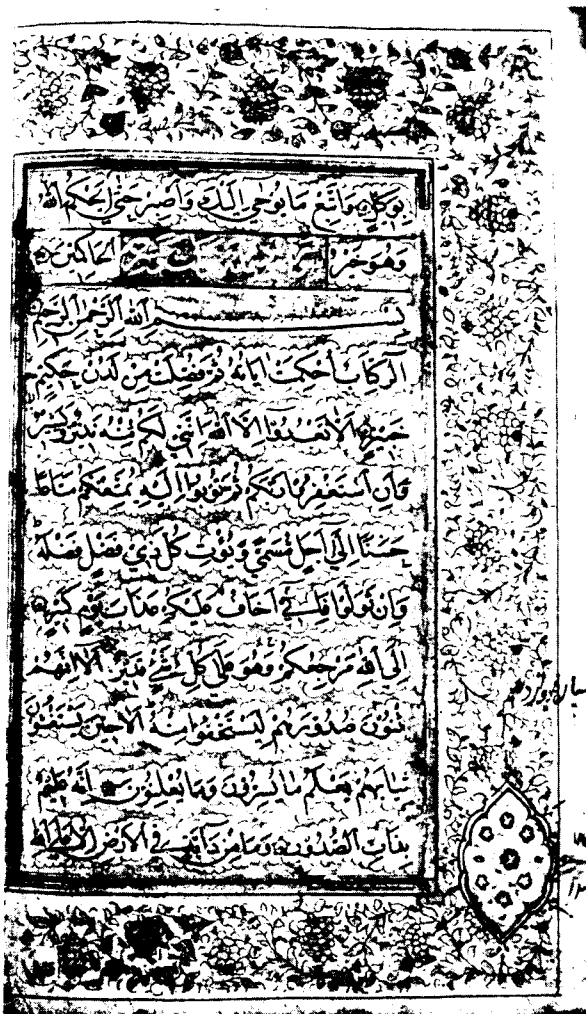 بوكيل واتبع ما يوحى اليك واصبر حتى يحكم الله
وهو خير الحاكمين
بسم الله الرحمن الرحيم
الر كتاب احكمت اياته ثم فصلت من لدن حكيم
خبير الا تعبدوا الا الله انني لكم منه نذير وبشير
وان استغفروا ربكم ثم توبوا اليه يمتعكم متاعا
حسنا الى اجل مسمى ويؤت كل ذي فضل فضله
وان تولوا فاني اخاف عليكم عذاب يوم كبير
الى الله مرجعكم وهو على كل شئ قدير الا انهم
يثنون صدورهم ليستخفوا منه الا حين يستغشون
ثيابهم يعلم ما يسرون وما يعلنون انه عليم
بذات الصدور وما من دابة في الارض الا على الله